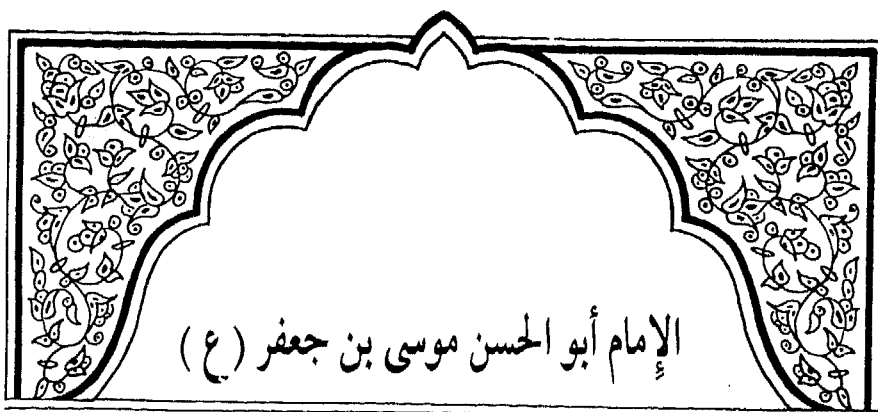 الإمام أبو الحسن موسى بن جعفر ( ع )